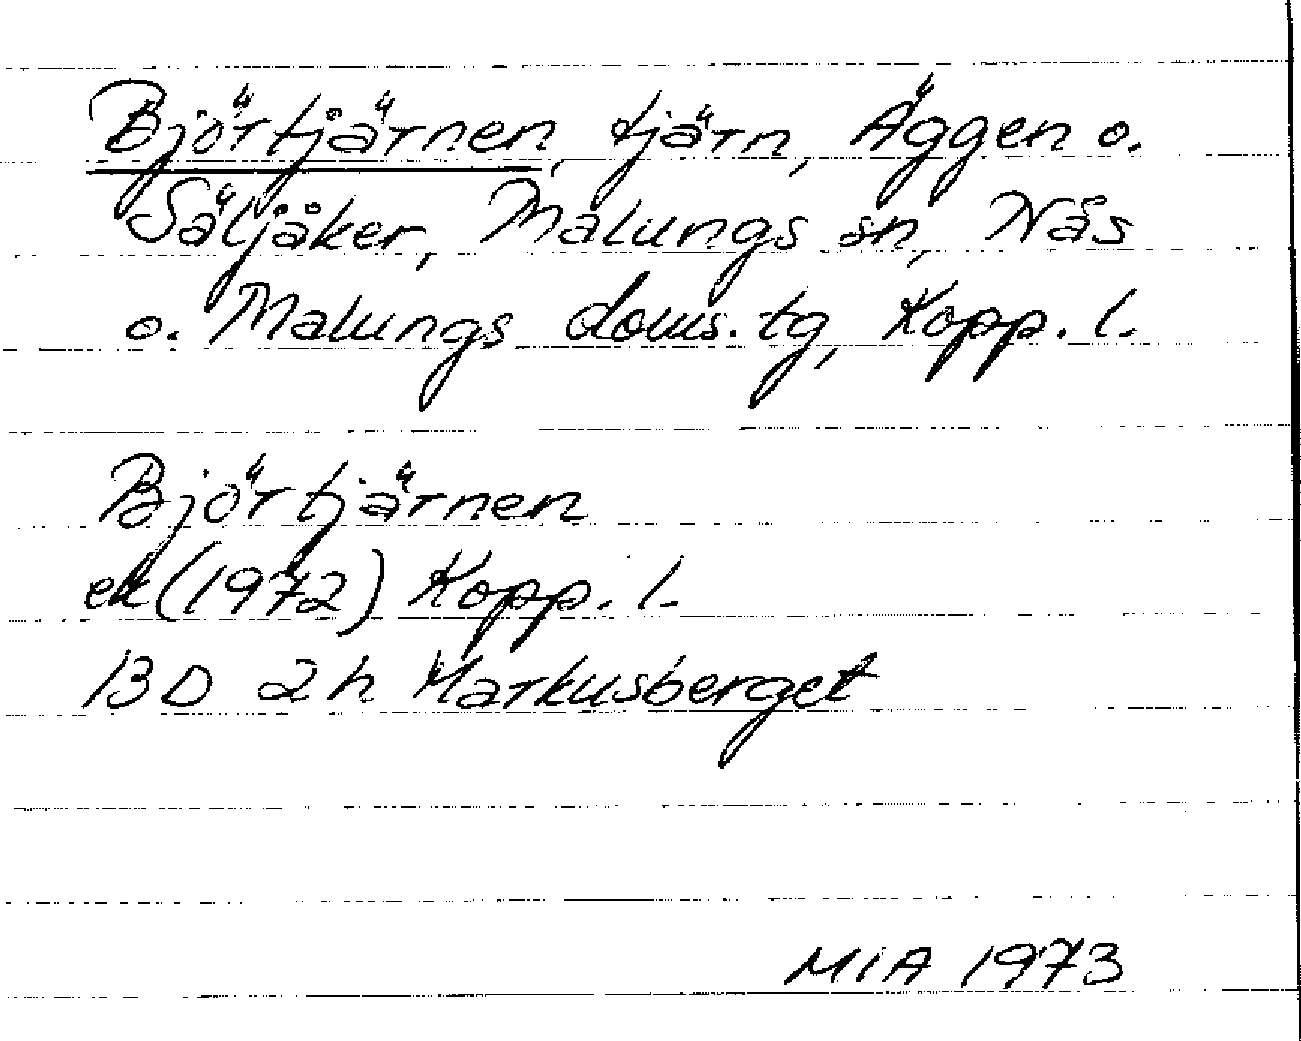 Björtjärnen, tjärn, Äggen o.
Säljåker, Malungs sn, Nås
o. Malungs doms. tg, Kopp. l.
Björtjärnen
ek (1972) Kopp. l.
13D 2h Markusberget
MIA 1973